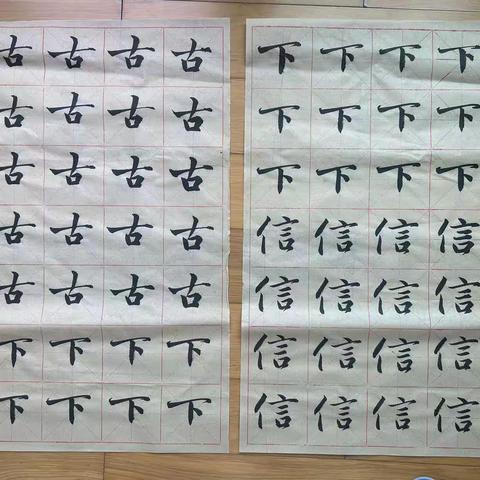 古 古 古 古
古 古 古 古
古 古 古 古
古 古 古 古
古 古 古 古
下 下 下 下
下 下 下 下
下 下 下 下
下 下 下 下
下 下 下 下
信 信 信 信
信 信 信 信
信 信 信 信
信 信 信 信